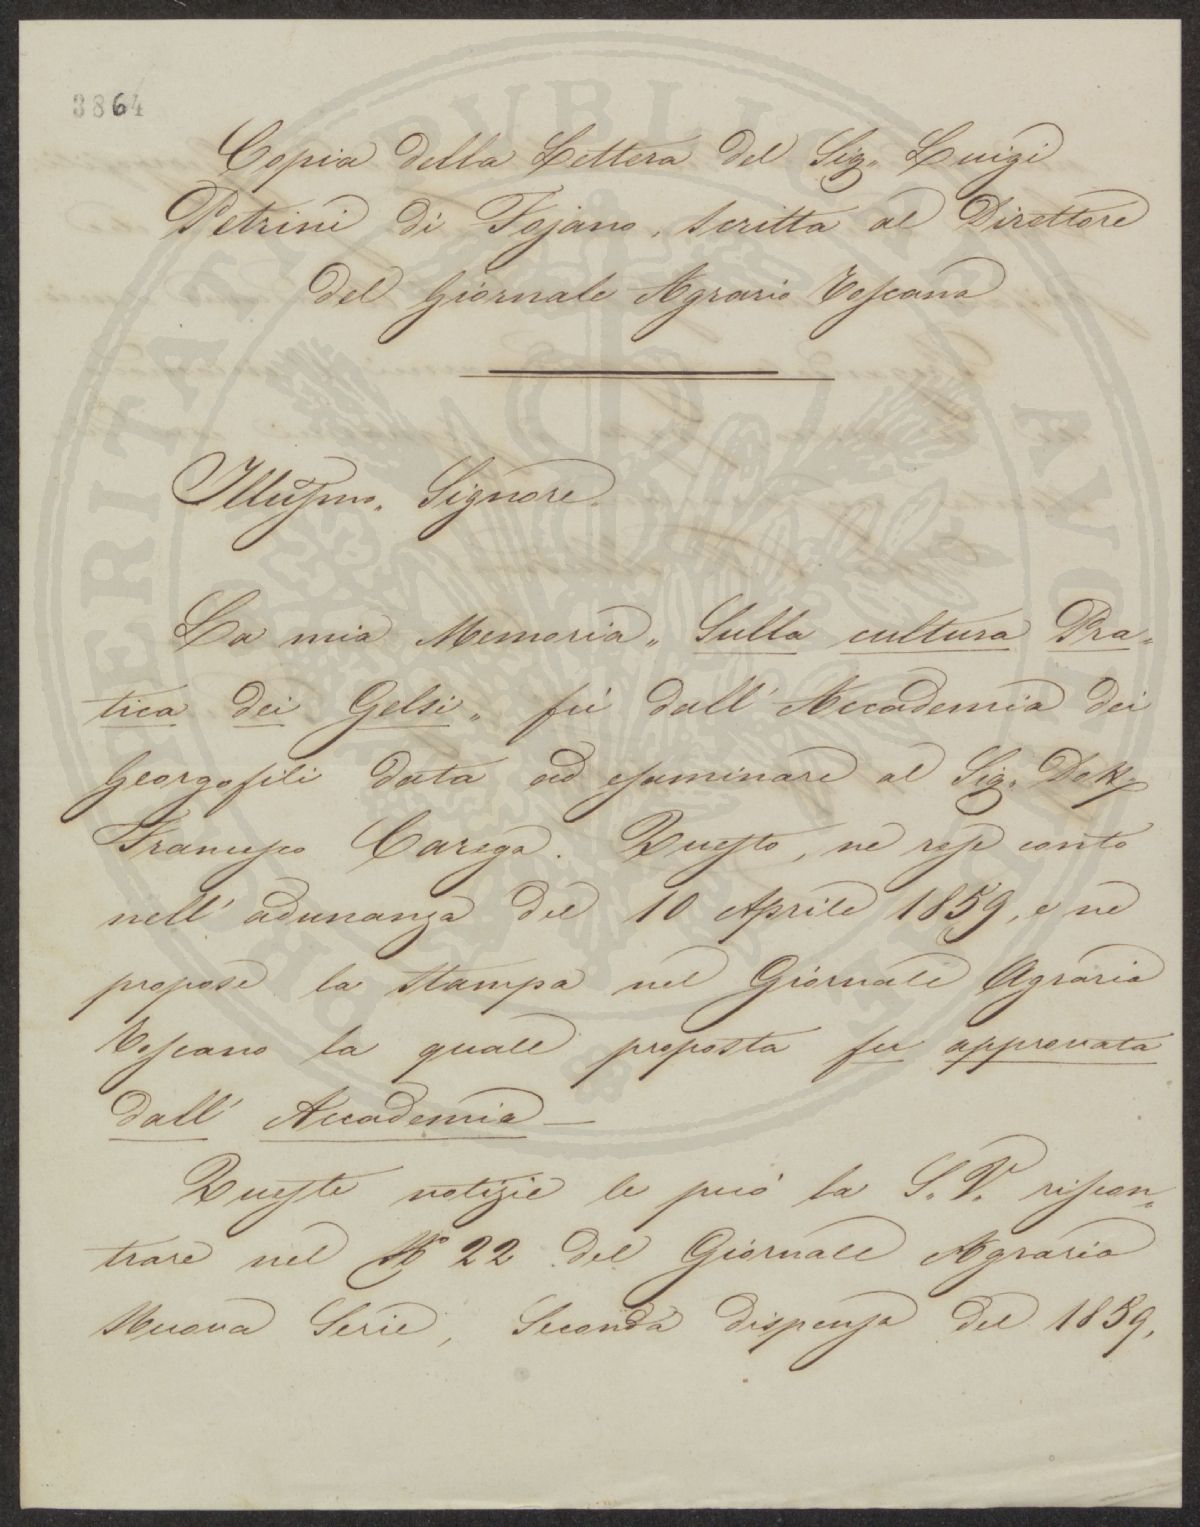 3864
Copia della Lettera del Sig. Luigi
Petrini di Fojano, scritta al Direttore
del Giornale Agrario Toscano
Illusmo. Signore.
La mia Memoria „ Sulla cultura Pra=
tica dei Gelsi „ fù dall' Accademia dei
Georgofili data ad esaminare al Sig. Dott.
Francesco Carega. Questo, ne rese conto
nell' adunanza del 10 Aprile 1859, e ne
propose la stampa nel Giornale Agrario
Toscano la quale proposta fu approvata
dall' Accademia —
Queste notizie le può la S. V. riscon=
trare nel No 22 del Giornale Agrario
Nuova Serie, Seconda dispensa del 1859,
PVBLICAE
PROSPERITATI AVGENDAE